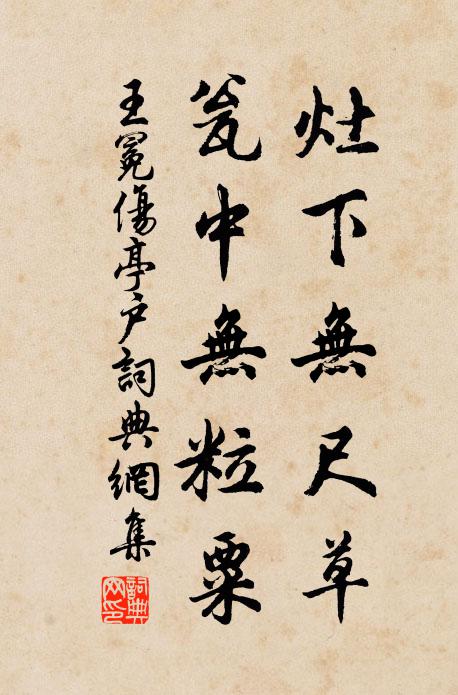 灶下無尺草
瓮中無粒粟
王冕傷亭户詞典網集
詞典网印